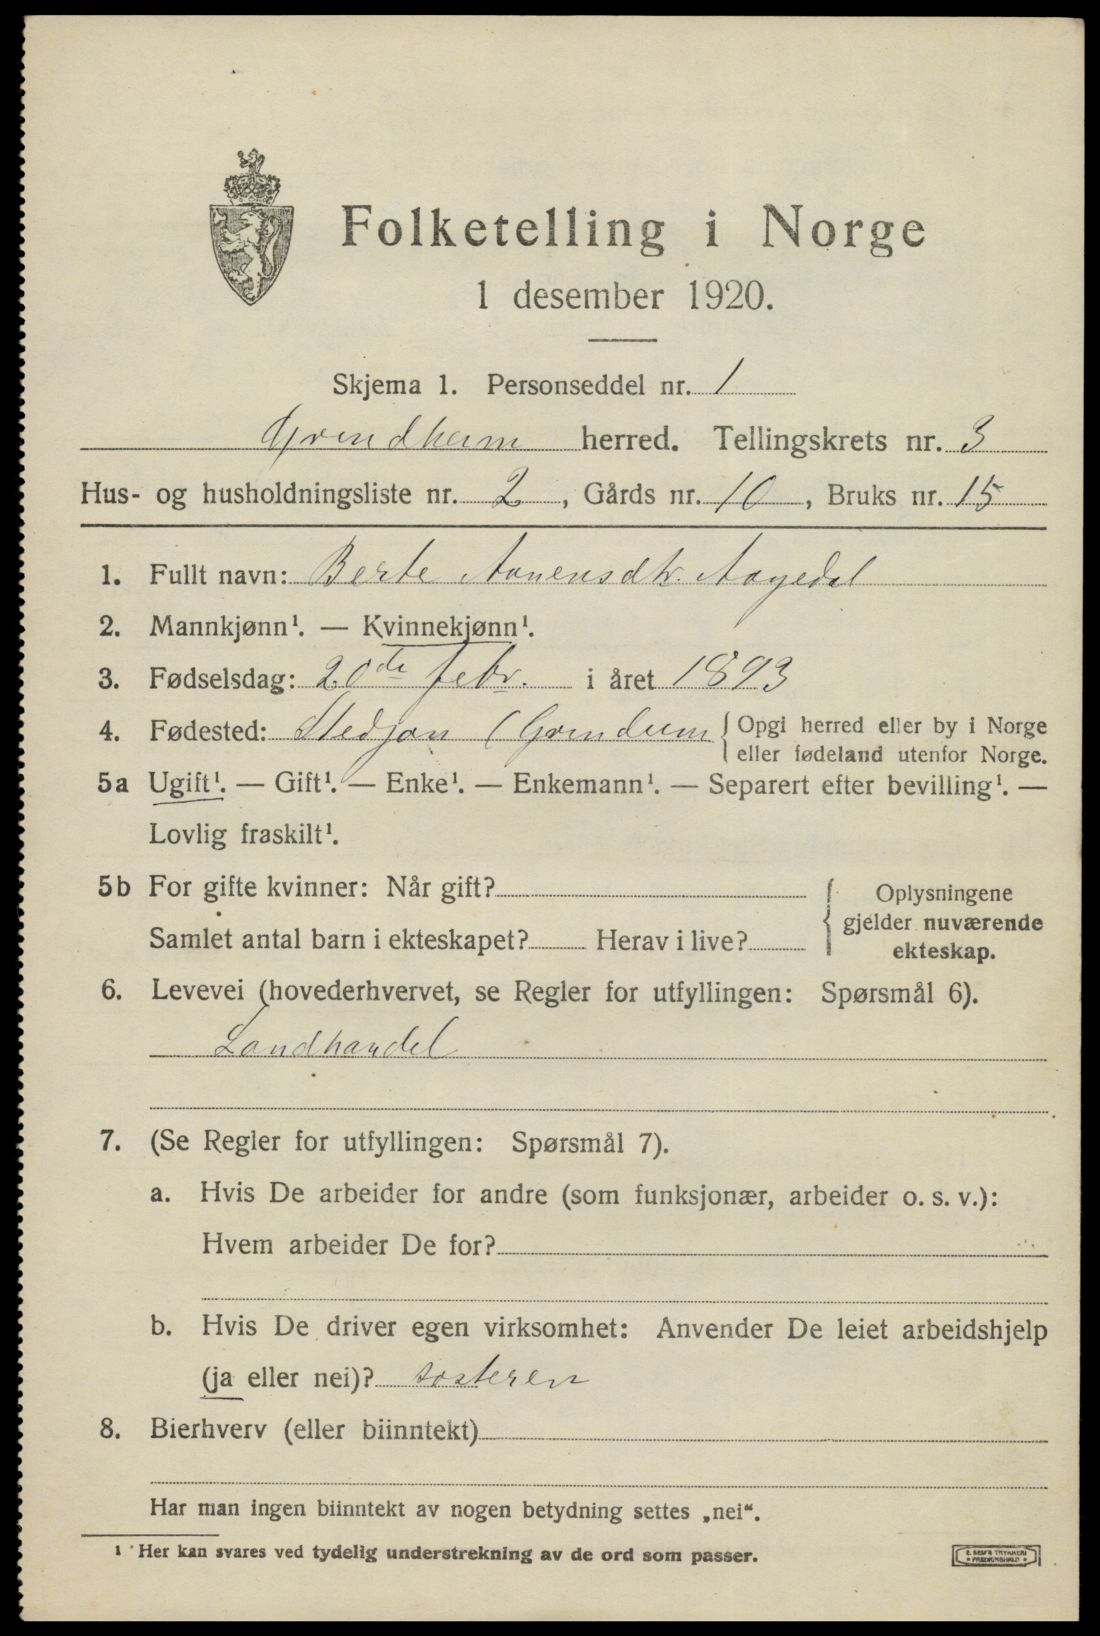 Folketelling i Norge
1 desember 1920.
Skjema 1. Personseddel nr. 1
Grindheim herred. Tellingskrets nr. 3
Hus- og husholdningsliste nr. 2, Gårds nr. 10, Bruks nr. 15
1. Fullt navn: Berte Aanensdtr. Aagedal
2. Mannkjønn¹. — Kvinnekjønn¹.
3. Fødselsdag: 20de febr. i året 1893
4. Fødested: (Grindum { Opgi herred eller by i Norge
eller fødeland utenfor Norge.
5a Ugift¹. — Gift¹. — Enke¹. — Enkemann¹. — Separert efter bevilling¹. —
Lovlig fraskilt¹.
5b For gifte kvinner: Når gift?
Samlet antal barn i ekteskapet? Herav i live?
{ Oplysningene
gjelder nuværende
ekteskap.
6. Levevei (hovederhvervet, se Regler for utfyllingen: Spørsmål 6).
Landhandel
7. (Se Regler for utfyllingen: Spørsmål 7).
a. Hvis De arbeider for andre (som funksjonær, arbeider o. s. v.):
Hvem arbeider De for?
b. Hvis De driver egen virksomhet: Anvender De leiet arbeidshjelp
(ja eller nei)? søsteren
8. Bierhverv (eller biinntekt)
Har man ingen biinntekt av nogen betydning settes „nei“.
¹ Her kan svares ved tydelig understrekning av de ord som passer.